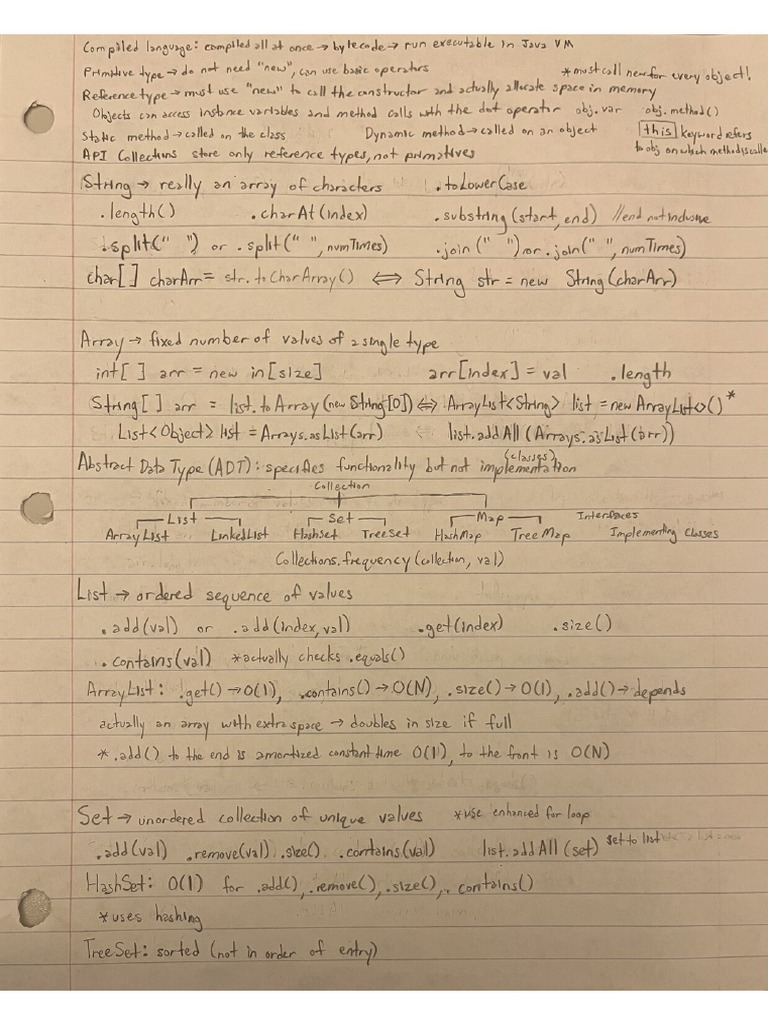 Compiled language: compiled all at once → bytecode → run executable in Java VM
Primitive type → do not need "new", can use basic operators *must call new for every object!
Reference type → must use "new" to call the constructor and actually allocate space in memory
Objects can access instance variables and method calls with the dot operator obj.var obj.method()
Static method → called on the class Dynamic method → called on an object this keyword refers
API Collections store only reference types, not primatives to obj on which method is called
String → really an array of characters .toLowerCase
.length() .charAt(index) .substring(start, end) //end not inclusive
.split(" ") or .split(" ", numTimes) .join(" ") or .join(" ", numTimes)
char[] charArr = str.toCharArray() ⇔ String str = new String(charArr)
Array → fixed number of values of a single type
int[ ] arr = new in[size] arr[index] = val .length
String[ ] arr = list.toArray(new String[0]) ⇔ ArrayList<String> list = new ArrayList<>()*
List<Object> list = Arrays.asList(arr) list.addAll(Arrays.asList(arr))
Abstract Data Type (ADT): specifies functionality but not implementation (classes)
Collection
List Set Map Interfaces
ArrayList LinkedList HashSet TreeSet HashMap TreeMap Implementing Classes
Collections.frequency(collection, val)
List → ordered sequence of values
.add(val) or .add(index, val) .get(index) .size()
.contains(val) *actually checks .equals()
ArrayList: .get() → O(1), .contains() → O(N), .size() → O(1), .add() → depends
actually an array with extra space → doubles in size if full
* .add() to the end is amortized constant time O(1), to the front is O(N)
Set → unordered collection of unique values *use enhanced for loop
.add(val) .remove(val) .size() .contains(val) list.addAll(set) set to list
HashSet: O(1) for .add(), .remove(), .size(), .contains()
*uses hashing
TreeSet: sorted (not in order of entry)